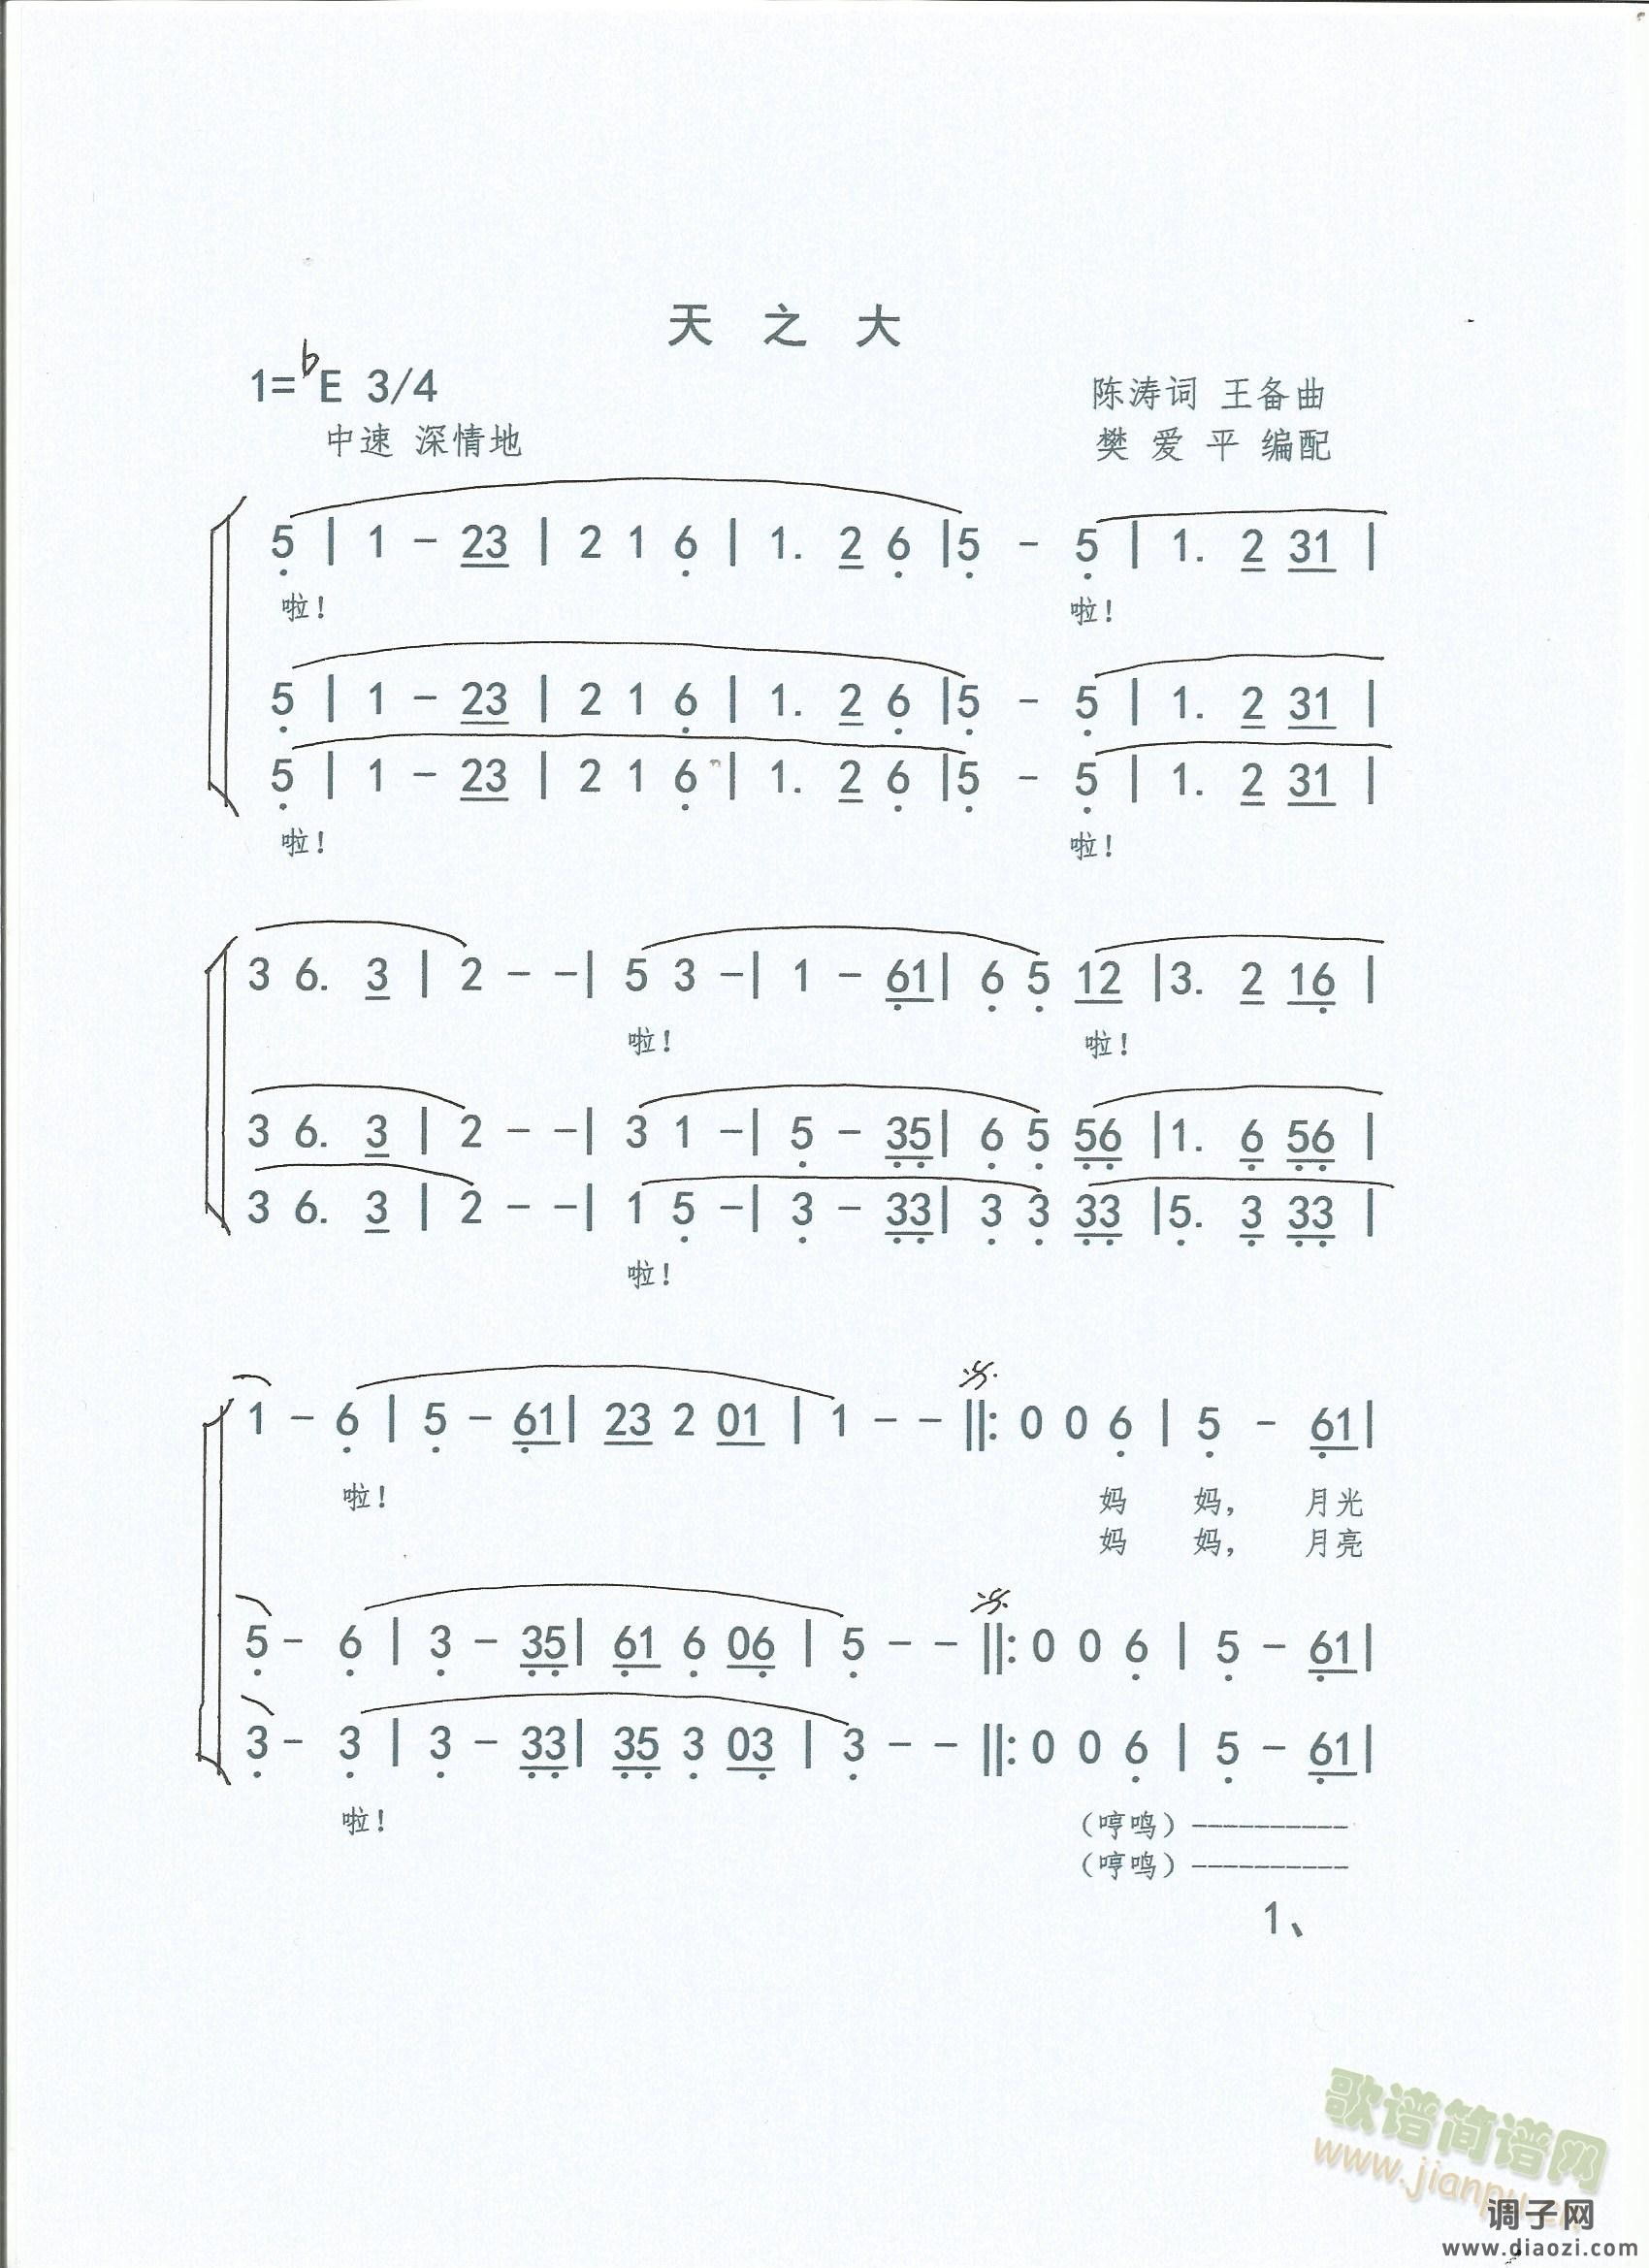 天 之 大
1=♭E 3/4
陈涛词 王备曲
中速 深情地
樊 爱 平 编配
5̣ | 1 - 23 | 2 1 6̣ | 1. 2 6̣ |5̣ - 5̣ | 1. 2 31 |
啦! 啦!
5̣ | 1 - 23 | 2 1 6̣ | 1. 2 6̣ |5̣ - 5̣ | 1. 2 31 |
5̣ | 1 - 23 | 2 1 6̣ | 1. 2 6̣ |5̣ - 5̣ | 1. 2 31 |
啦! 啦!
3 6. 3 | 2 - -| 5 3 -| 1 - 6̣1| 6̣ 5̣ 12 |3. 2 16̣ |
啦! 啦!
3 6. 3 | 2 - -| 3 1 -| 5̣ - 3̣5̣| 6̣ 5̣ 5̣6̣ |1. 6̣ 5̣6̣ |
3 6. 3 | 2 - -| 1 5̣ -| 3̣ - 3̣3̣| 3̣ 3̣ 3̣3̣ |5̣. 3̣ 3̣3̣ |
啦!
1 - 6̣ | 5̣ - 6̣1| 23 2 01 | 1 - - ‖: 0 0 6̣ | 5̣ - 6̣1|
啦! 妈 妈, 月光
妈 妈, 月亮
5̣ - 6̣ | 3̣ - 3̣5̣| 6̣1 6̣ 06̣ | 5̣ - - ‖: 0 0 6̣ | 5̣ - 6̣1|
3̣ - 3̣ | 3̣ - 3̣3̣| 3̣5̣ 3̣ 03̣ | 3̣ - - ‖: 0 0 6̣ | 5̣ - 6̣1|
啦! (哼鸣) ----------
(哼鸣) ----------
1、
歌谱简谱网
www.jianpu.cn
调子网
www.diaozi.com